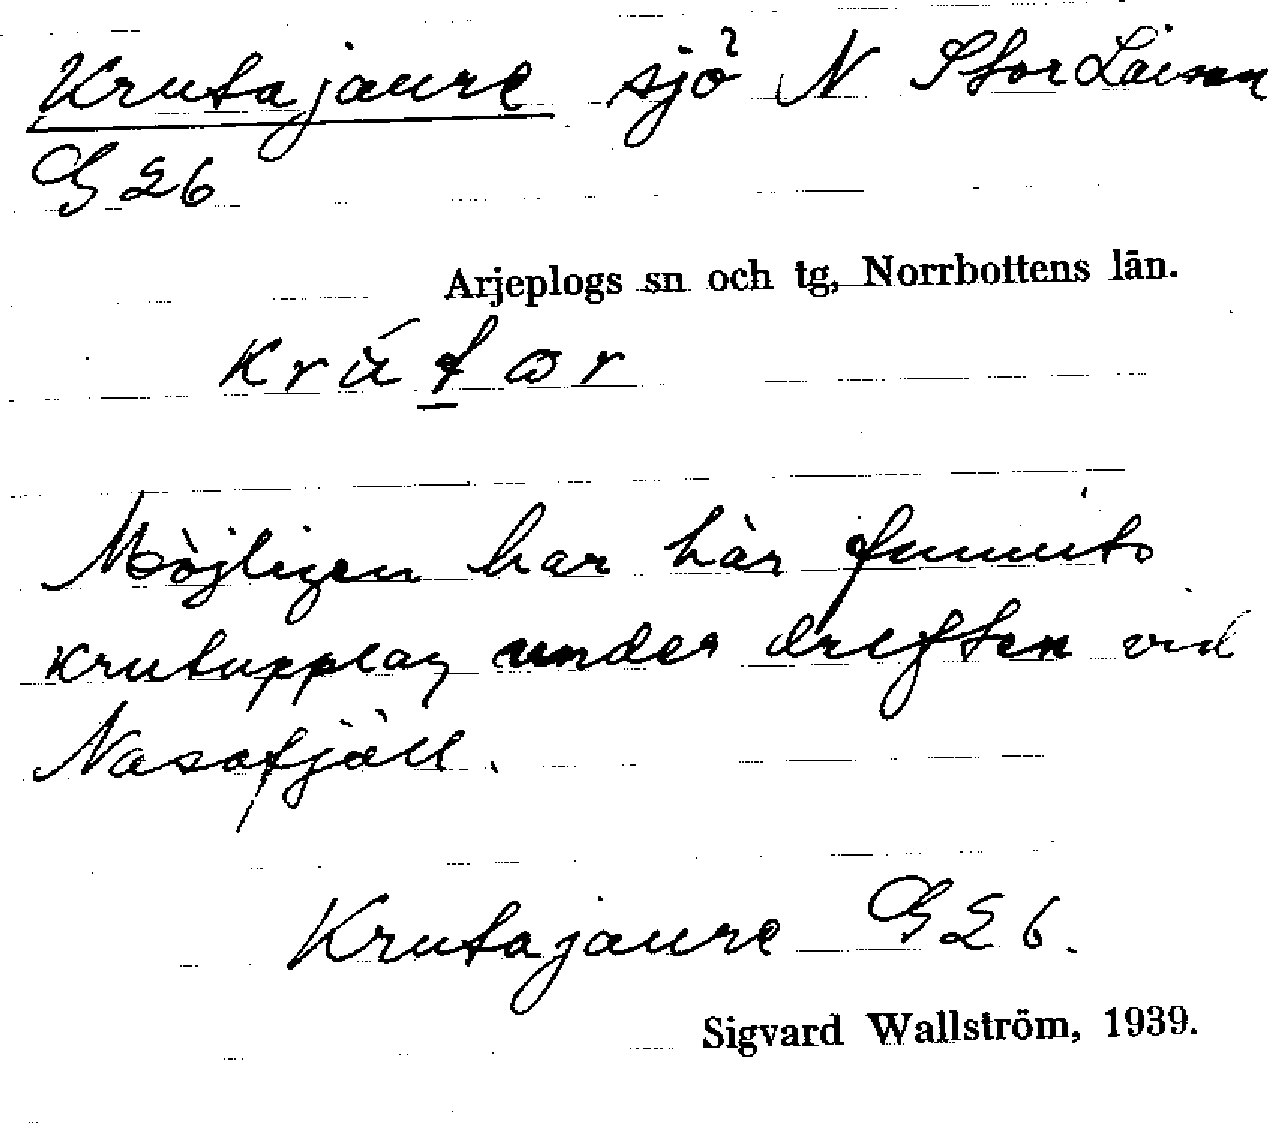 Krutajaure sjö N StorLaisan
G 26
Arjeplogs sn och tg, Norrbottens län.
Möjligen har här funnits
krutupplag under driften vid
Nasafjäll.
Krutajaure G 26.
Sigvard Wallström, 1939.